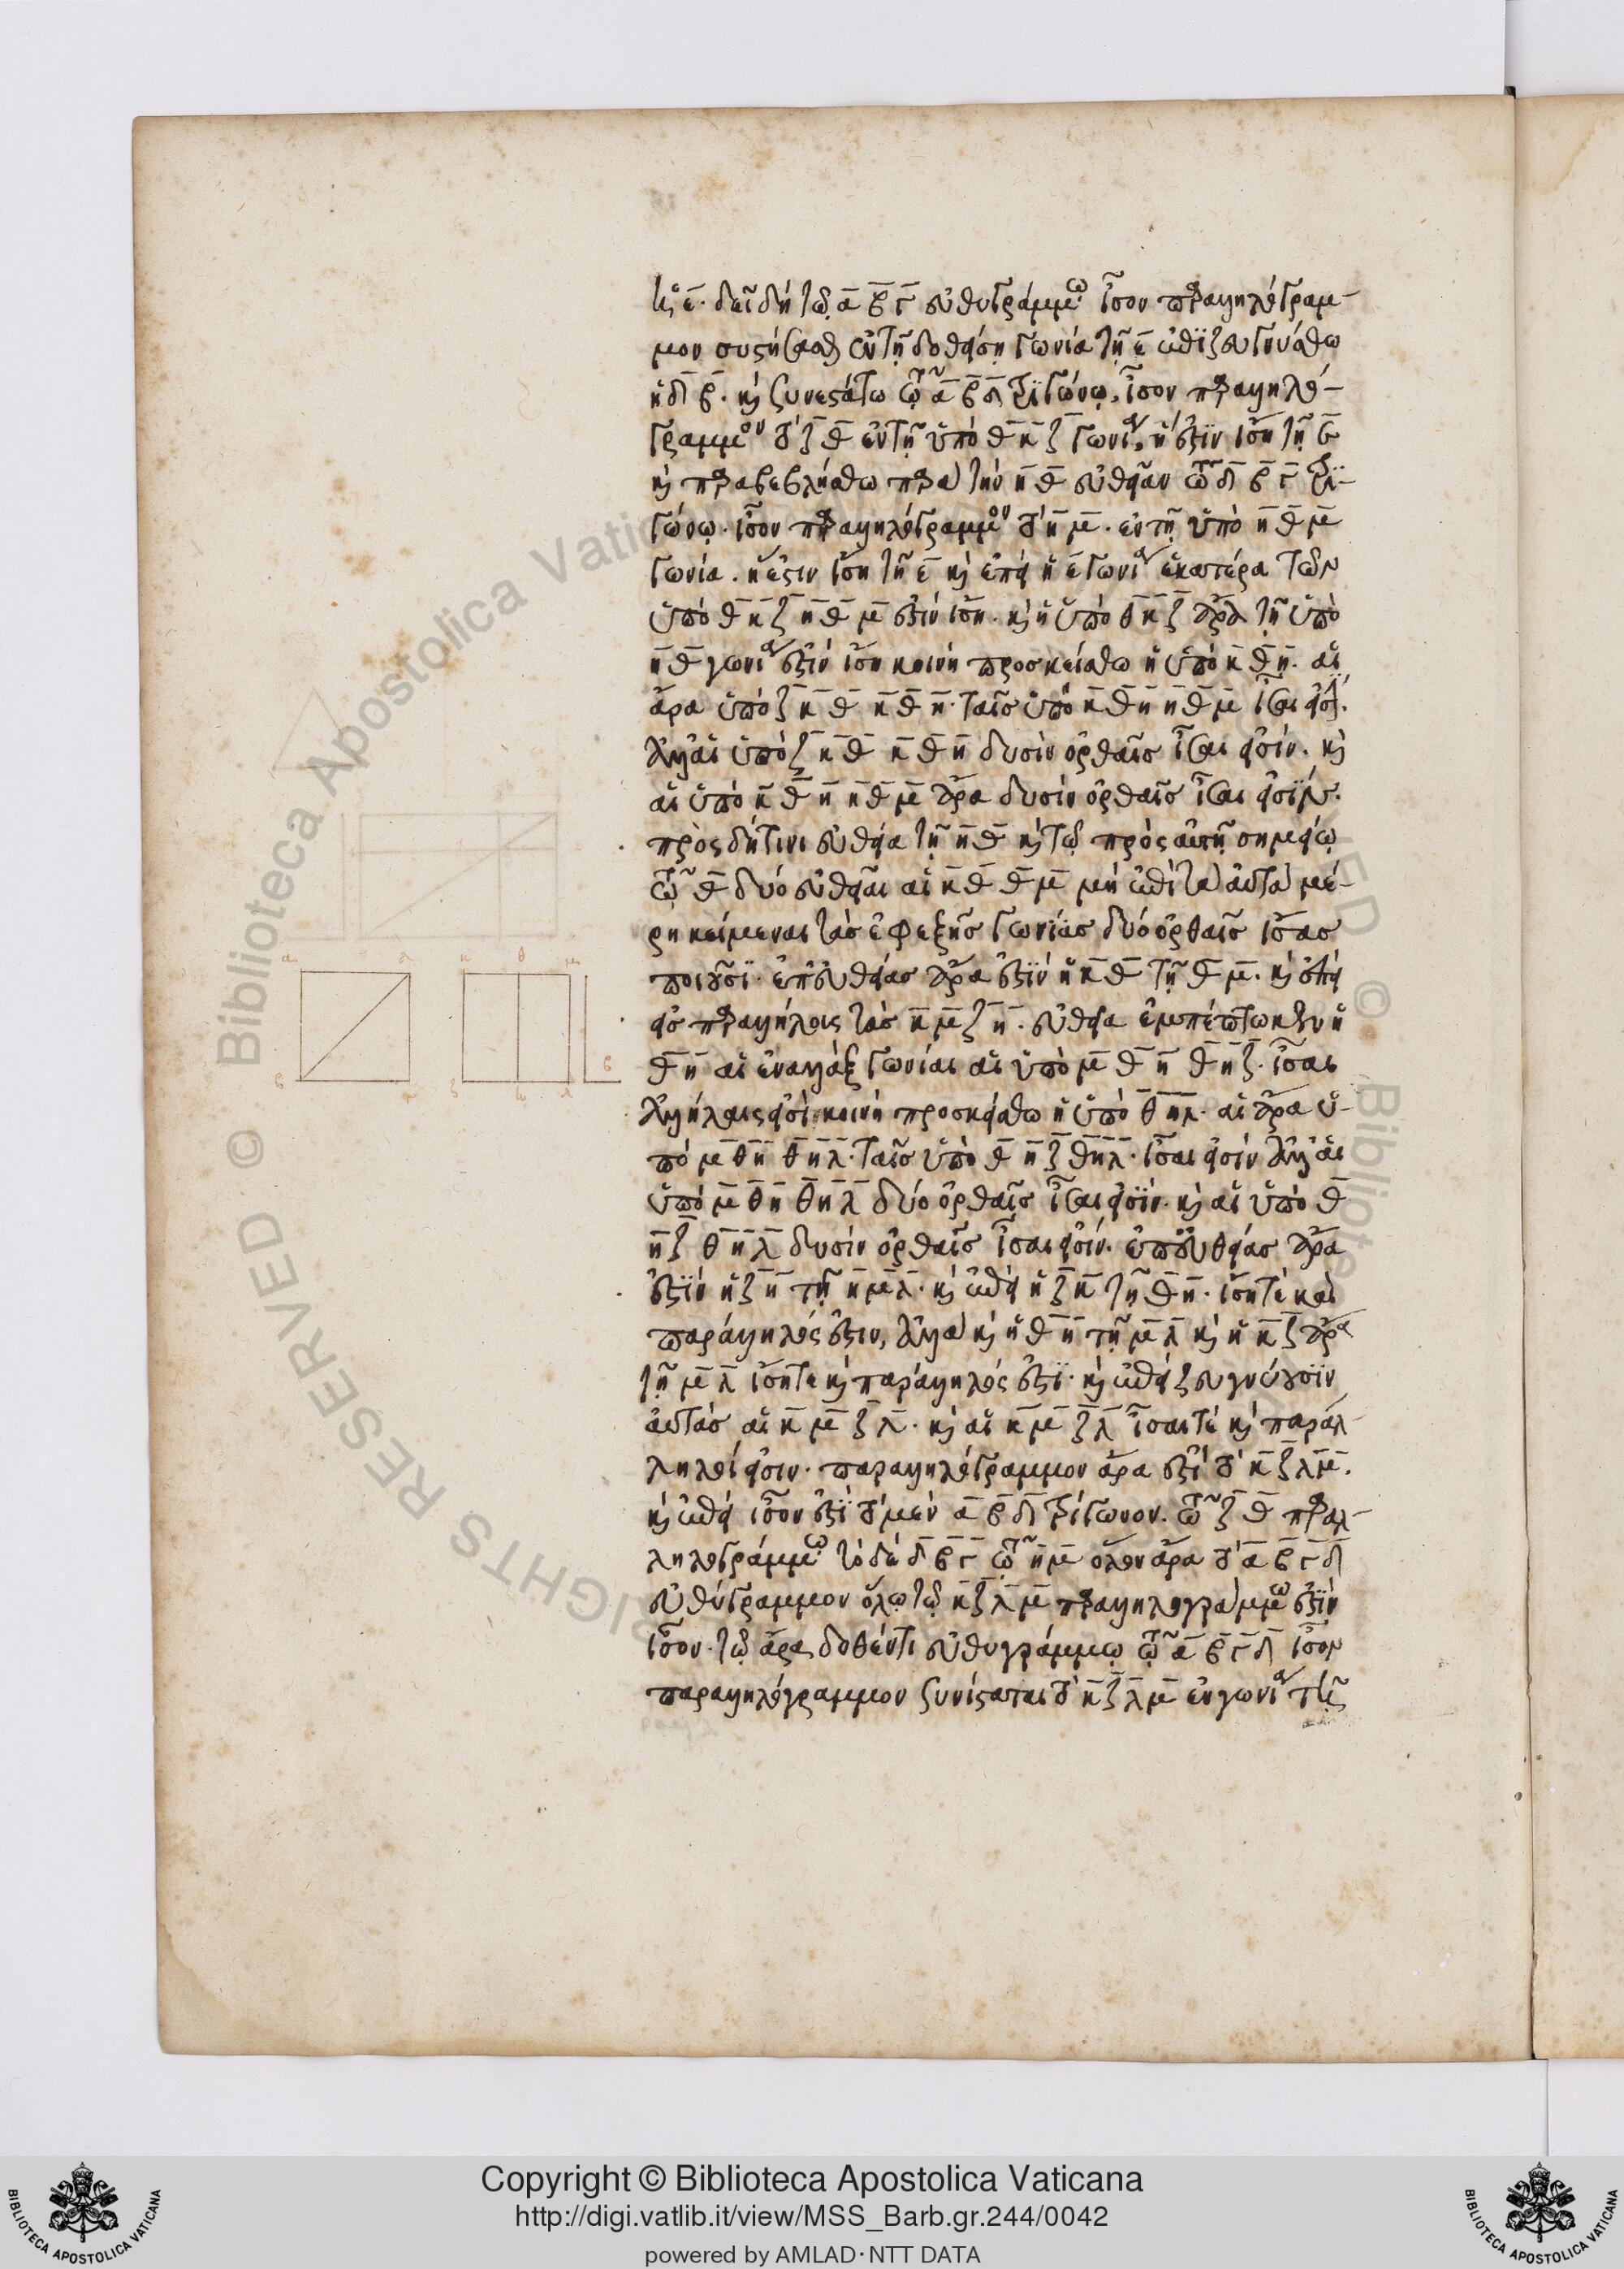 τῆς ε̄. δεῖ δὴ τῶ ᾱ β̄ γ̄ εὐθυγράμμω ἴσον παραλληλόγραμ-
μον συστήσασθαι ἐν τῆ δοθείση γωνία τῆ ε̄ ἐπεζεύχθω
ἡ δ̄ β̄. καὶ συνεστάτω τῶ ᾱ β̄ δ̄ τριγώνω. ἴσον παραλληλό-
γραμμον τὸ ζ̄ θ̄ ἐν τῆ ὑπὸ θ̄ κ̄ ζ̄ γωνία, ἥ ἐστιν ἴση τῆ ε̄
καὶ παραβεβλήσθω παρὰ τὴν η̄ θ̄ εὐθεῖαν τῶ δ̄ β̄ γ̄ τρι-
γώνω. ἴσον παραλληλόγραμμον τὸ η̄ μ̄. ἐν τῆ ὑπὸ η̄ θ̄ μ̄
γωνία. ἥ ἐστιν ἴση τῆ ε̄ καὶ ἐπεὶ ἡ ε̄ γωνία ἑκατέρα τῶν
ὑπὸ θ̄ κ̄ ζ̄ η̄ θ̄ μ̄ ἐστὶν ἴση. καὶ ἡ ὑπὸ θ̄ κ̄ ζ̄ ἄρα τῆ ὑπὸ
η̄ θ̄ γωνία ἐστὶν ἴση κοινὴ προσκείσθω ἡ ὑπὸ κ̄ θ̄ η̄. αἱ
ἄρα ὑπὸ ζ̄ κ̄ θ̄ κ̄ θ̄ η̄. ταῖς ὑπὸ κ̄ θ̄ η̄ η̄ θ̄ μ̄ ἴσαι εἰσί.
ἀλλ' αἱ ὑπὸ ζ̄ κ̄ θ̄ κ̄ θ̄ η̄ δυσὶν ὀρθαῖς ἴσαι εἰσίν. καὶ
αἱ ὑπὸ κ̄ θ̄ η̄ η̄ θ̄ μ̄ ἄρα δυσὶν ὀρθαῖς ἴσαι εἰσίν.
πρὸς δή τινι εὐθεία τῆ η̄ θ̄ καὶ τῶ πρὸς αὐτῆ σημείω
τῶ θ̄ δύο εὐθεῖαι αἱ κ̄ θ̄ θ̄ μ̄ μὴ ἐπὶ τὰ αὐτὰ μέ-
ρη κείμεναι τὰς ἐφεξῆς γωνίας δύο ὀρθαῖς ἴσας
ποιοῦσι. ἐπ' εὐθείας ἄρα ἐστὶν ἡ κ̄ θ̄ τῆ θ̄ μ̄. καὶ ἐπεὶ
εἰς παραλλήλοις τὰς κ̄ μ̄ ζ̄ η̄. εὐθεῖα ἐμπέπτωκεν ἡ
θ̄ η̄ αἱ ἐναλλὰξ γωνίαι αἱ ὑπὸ μ̄ θ̄ η̄ θ̄ η̄ ζ̄. ἴσαι
ἀλλήλαις εἰσί. κοινὴ προσκείσθω ἡ ὑπὸ θ̄ η̄ λ̄. αἱ ἄρα ὑ-
πὸ μ̄ θ̄ η̄ θ̄ η̄ λ̄. ταῖς ὑπὸ θ̄ η̄ ζ̄ θ̄ η̄ λ̄. ἴσαι εἰσίν ἀλλ' αἱ
ὑπὸ μ̄ θ̄ η̄ θ̄ η̄ λ̄ δύο ὀρθαῖς ἴσαι εἰσίν. καὶ αἱ ὑπὸ θ̄
η̄ ζ̄ θ̄ η̄ λ̄ δυσὶν ὀρθαῖς ἴσαι εἰσίν. ἐπ' εὐθείας ἄρα
ἐστὶν ἡ ζ̄ η̄ τῆ η̄ μ̄ λ̄. καὶ ἐπεὶ ἡ ζ̄ κ̄ τῆ θ̄ η̄. ἴση τὲ καὶ
παράλληλός ἐστιν, ἀλλὰ καὶ ἡ θ̄ η̄ τῆ μ̄ λ̄ καὶ ἡ κ̄ ζ̄ ἄρα
τῆ μ̄ λ̄ ἴση τε καὶ παράλληλός ἐστι. καὶ ἐπεὶ ζευγνύουσιν
αὐτὰς αἱ κ̄ μ̄ ζ̄ λ̄. καὶ αἱ κ̄ μ̄ ζ̄ λ̄ ἴσαι τὲ καὶ παράλ-
ληλοί εἰσιν. παραλληλόγραμμον ἄρα ἐστὶ τὸ κ̄ ζ̄ λ̄ μ̄.
καὶ ἐπεὶ ἴσον ἐστὶ τὸ μὲν ᾱ β̄ δ̄ τρίγωνον. τῶ ζ̄ θ̄ παραλ-
ληλογράμμω τὸ δὲ δ̄ β̄ γ̄ τῶ η̄ μ̄ ὅλον ἄρα τὸ ᾱ β̄ γ̄ δ̄
εὐθύγραμμον ὅλω τῶ κ̄ ζ̄ λ̄ μ̄ παραλληλογράμμω ἐστὶν
ἴσον. τῶ ἄρα δοθέντι εὐθυγράμμω τῶ ᾱ β̄ γ̄ δ̄ ἴσον
παραλληλόγραμμον συνίσταται τὸ κ̄ ζ̄ λ̄ μ̄ ἐν γωνία τῆ
α δ
β γ
κ θ μ
ζ η λ
ε
© Biblioteca Apostolica Vaticana
RIGHTS RESERVED
Copyright © Biblioteca Apostolica Vaticana
http://digi.vatlib.it/view/MSS_Barb.gr.244/0042
powered by AMLAD·NTT DATA
BIBLIOTECA APOSTOLICA VATICANA
BIBLIOTECA APOSTOLICA VATICANA